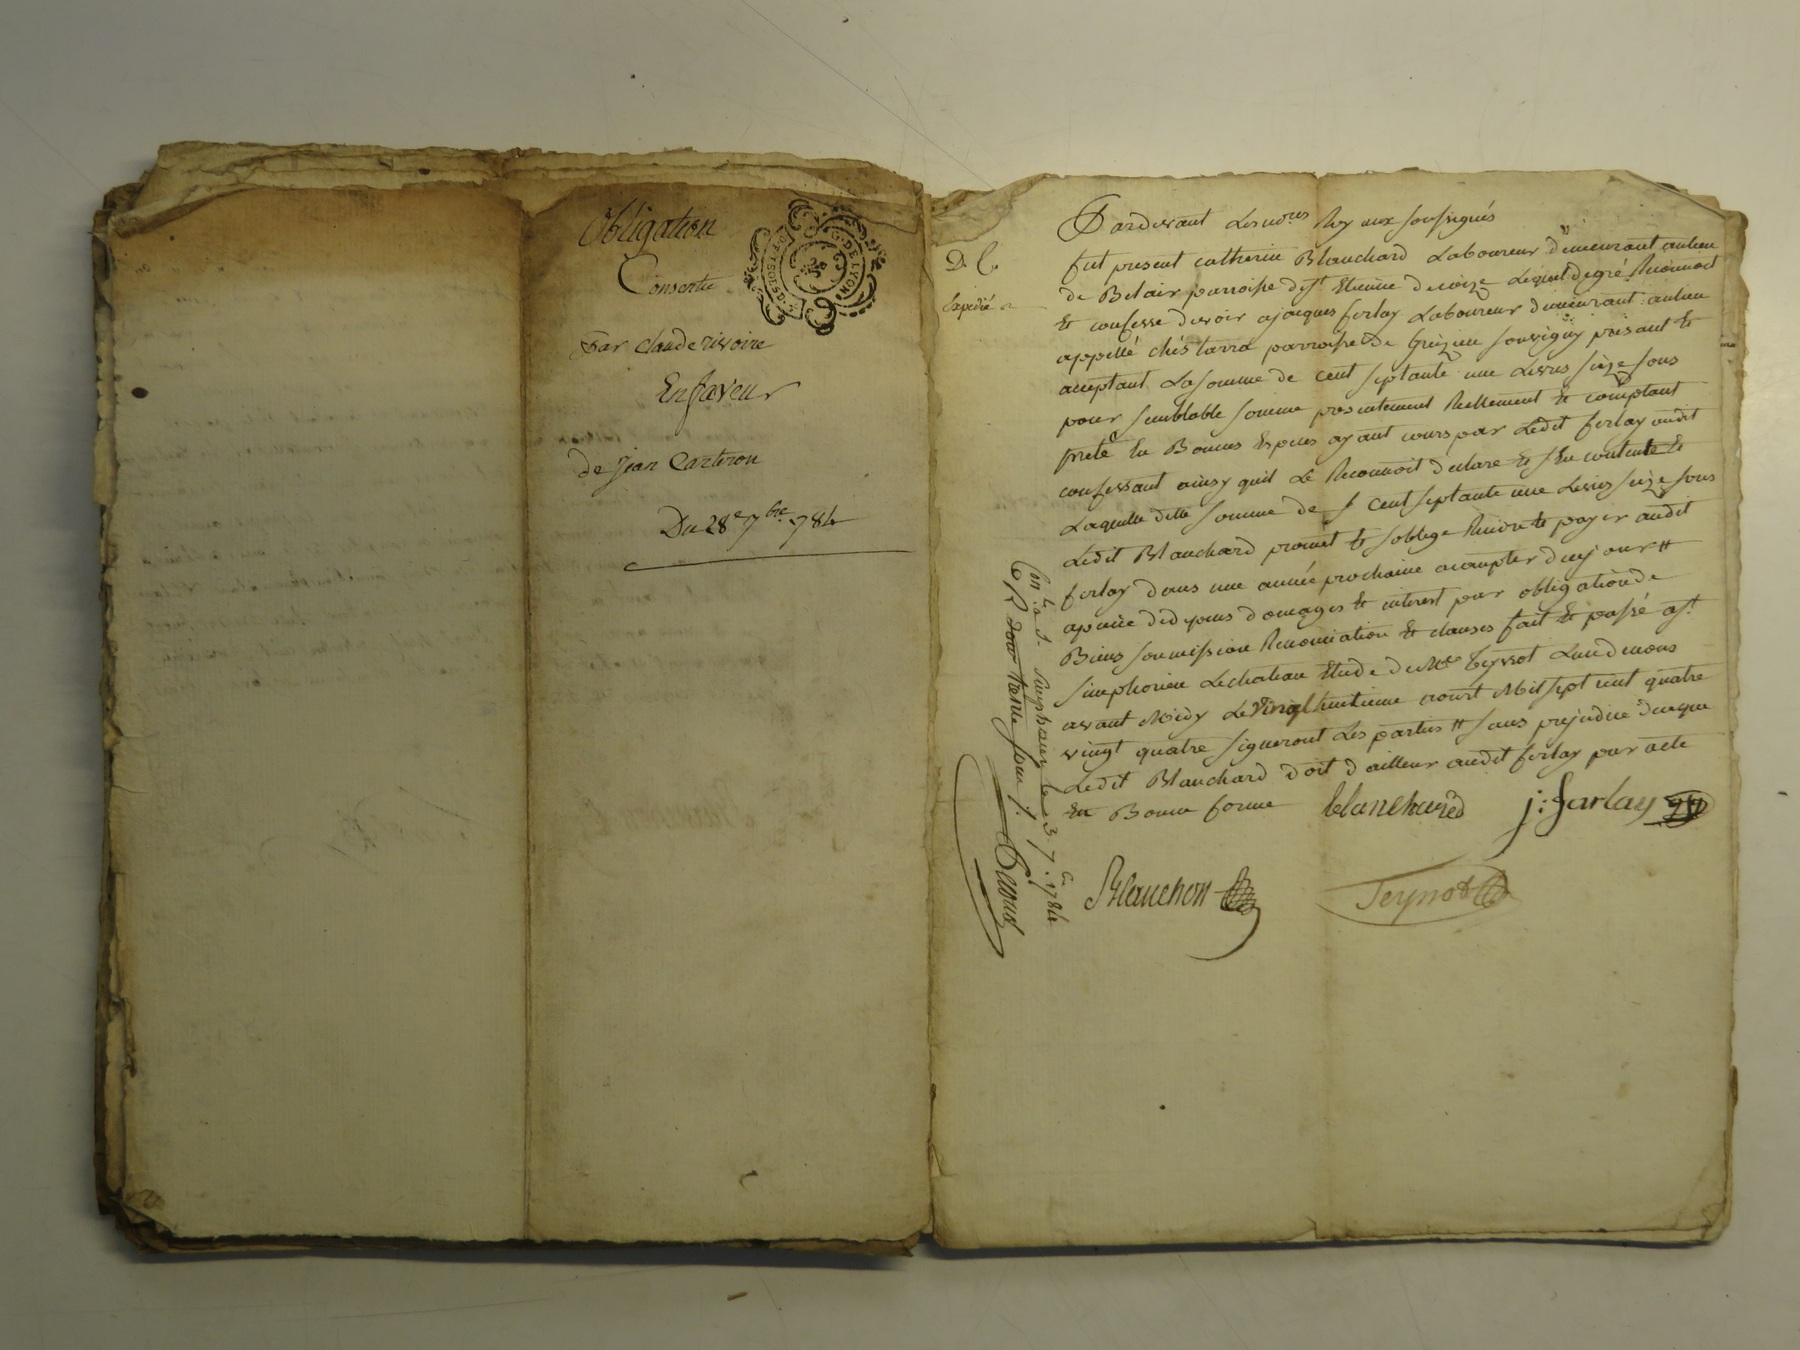 Obligation
Consentie
G. DE LYON
DEUX SOLS
Par claude rivoire
En faveur
de Jean Carteron
Du 28e 7bre 784
Pardevant Les nores Royaux soussignés
D. C.
fut present catherin Blanchard Laboureur demeurant aulieu
Expedié
de Belair parroisse de st Etienne de coize Lequel de gré Reconnoit
Et confesse devoir a jacques ferlay Laboureur demeurant aulieu
appellé chés tarra parroisse de Grezieu souvigny presant Et
acceptant La somme de cent septante une Livres seize sous
pour semblable somme presentement Reellement Et comptant
preté En Bonnes Especes ayant cours par Ledit ferlay audit
confessant ainsy quil Le Reconnoit declare Et s'En contente Et
Laquelle ditte somme de cent septante une Livres seize sous
Ledit Blanchard promet Et s'oblige Rendre Et payer audit
ferlay dans une année prochaine acompter de ce jour #
apeine de depens domages Et interest par obligation de
Biens soumission Renonciation Et clauses fait Et passé a st
simphorien Le chateau Etude de Me Teyrnot L'un de nous
avant Midy Le Vingt huitieme aoust Mil sept cent quatre
vingt quatre signeront Les parties # sans prejudice de ce que
Ledit Blanchard doit d'ailleur audit ferlay par acte
En Bonne forme
blanchard
j: farlay
Con.lé a St Simphorien le 3 7.e 1784
R. pour trente sous
Blanchon
Teyrnot